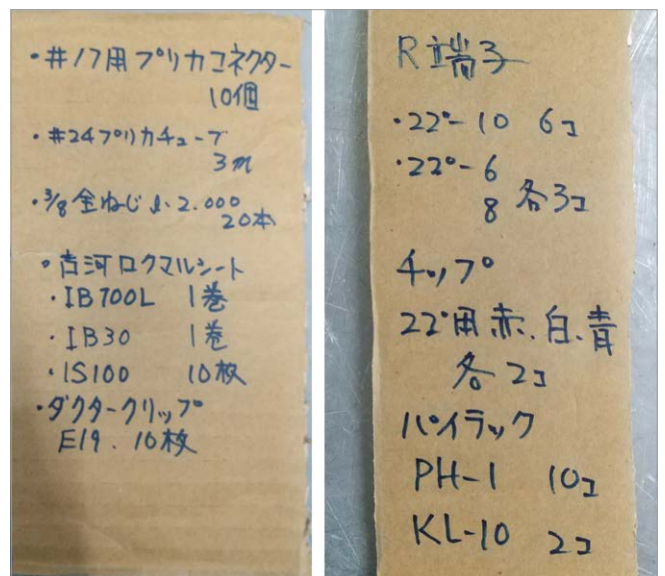 ・#17用プリカコネクター
10個
・#24プリカチューブ
3m
・3/8全ねじ l・2.000
20本
・古河ロクマルシート
・IB700L 1巻
・IB30 1巻
・IS100 10枚
・ダクタークリップ
E19. 10枚
R端子
・22°-10 6コ
・22°-6
8 各3コ
チップ
22°用赤、白、青
各2コ
パイラック
PH-1 10コ
KL-10 2コ